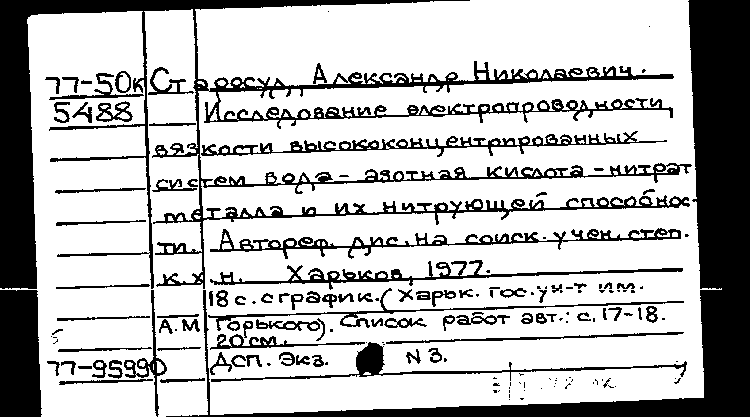 77-50к Старосуд, Александр Николаевич.
5488 Исследование электропроводности,
вязкости высококонцентрированных
систем вода - азотная кислота - нитрат
металла и их нитрующей способнос-
ти. Автореф. дис. на соиск. учен. степ.
к.х.н. Харьков, 1977.
18 с. с график. (Харьк. гос. ун-т им.
А.М. Горького). Список работ авт.: с. 17-18.
20 см.
77-95990 ДСП. Экз. N 3.